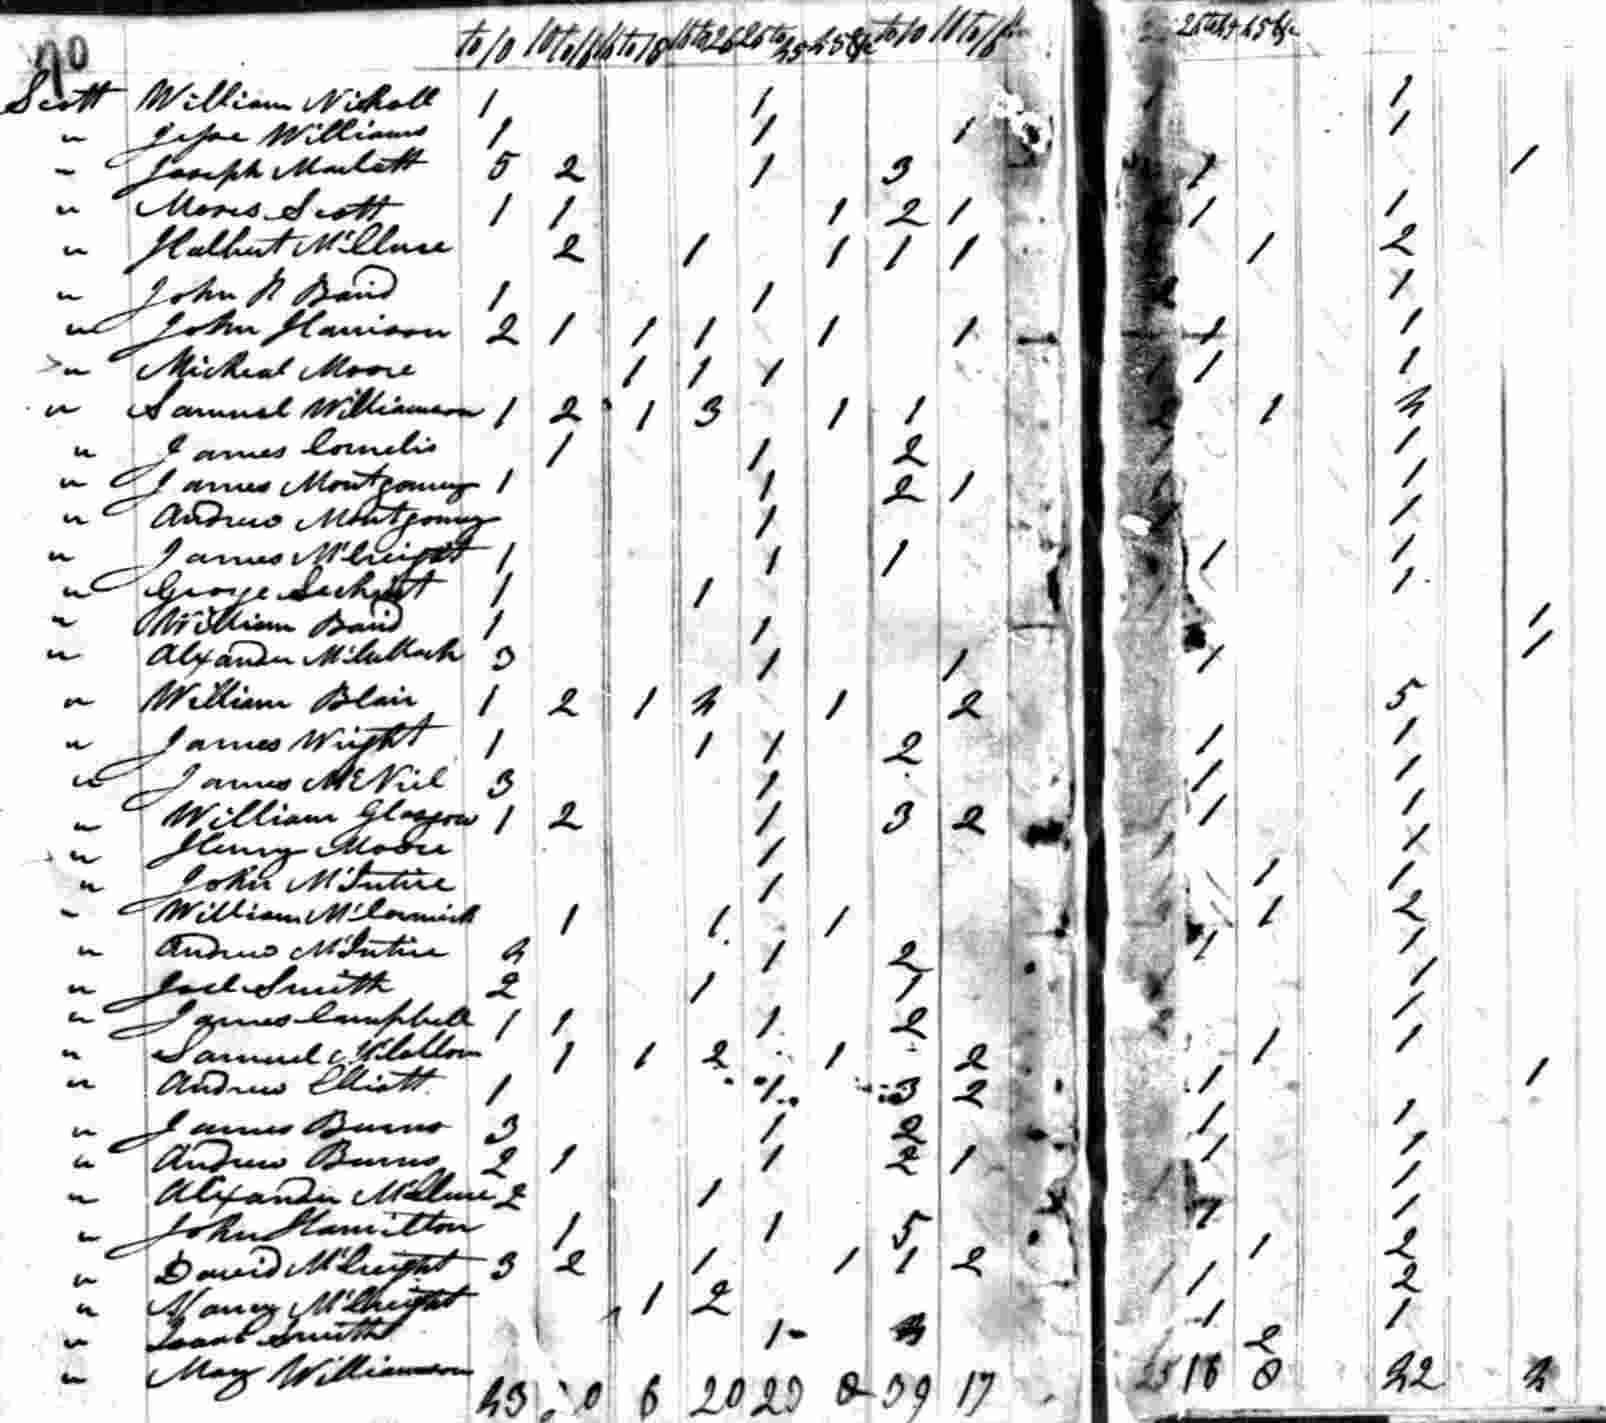 to 10 10 to 16 16 to 18 16 to 26 26 to 45 45 &c to 10 10 to 16 26 to 45 45 &c
Scott William Nicholl 1 1 1 1
" Jesse Williams 1 1 1 1
" Joseph 5 2 1 3 1 1
" Moses Scott 1 1 1 2 1 1 1
" Halbert McClure 2 1 1 1 1 1 2
" John Baird 1 1 2 1
" John Harrison 2 1 1 1 1 1 1 1
" Micheal Moore 1 1 1 1 1 1
" Samuel Williamson 1 2 1 3 1 1 2 1 4
" James Cornelis 1 1 2 1 1
" James Montgomery 1 1 2 1 1 1
" Andrew Montgomery 1 1 1
" James McCreight 1 1 1 1 1
" George 1 1 1 1
" William Baird 1 1 1
" Alexander McCulloch 3 1 1 1 1
" William Blair 1 2 1 4 1 2 5
" James Wright 1 1 1 2 1 1
" James McNiel 3 1 1 1
" William Glasgow 1 2 1 3 2 1 1
" Henry Moore 1 1 1
" John McIntire 1 1 1
" William McCormick 1 1 1 1 2
" Andrew McIntire 4 1 2 1 1
" Joel Smith 2 1 1 1 1
" James Campbell 1 1 1 2 1 1
" Samuel 1 1 2 1 2 1 1
" Andrew Elliott 1 1 3 2 1 1
" James Burns 3 1 2 1 1
" Andrew Burns 2 1 1 2 1 1 1
" Alexander McClure 2 1 1 1
" John Hamilton 1 1 5 1 1
" David McCreight 3 2 1 1 1 2 1 2
" Nancy McCreight 1 2 1 1 2
" Isaac Smith 1 4 1 1
" Mary Williamson 2
43 6 20 23 8 39 17 25 18 8 42 4